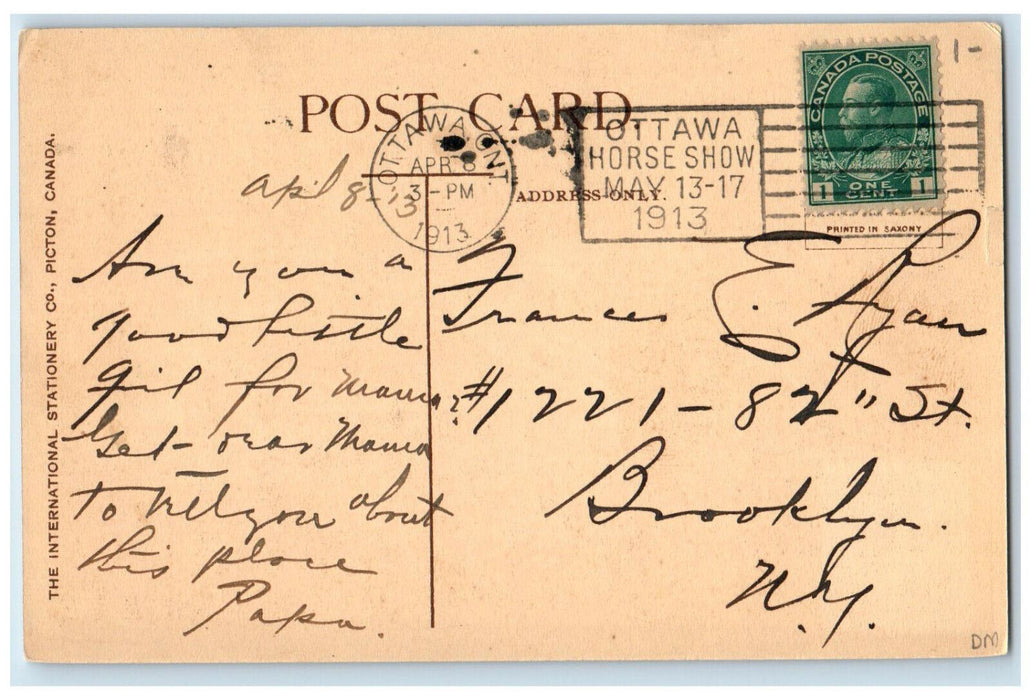 POST CARD.
1-
CANADA POSTAGE
1 ONE CENT 1
OTTAWA, ONT
APR 8
3-PM
1913
OTTAWA
HORSE SHOW
MAY 13-17
1913
ADDRESS ONLY.
PRINTED IN SAXONY
THE INTERNATIONAL STATIONERY CO., PICTON, CANADA.
April 8-13
Are you a
good little
girl for mama?
Get Mama
to tell you about
this place
Papa.
Frances E. Ryan
#1221-82" St.
Brooklyn.
N.Y.
DM